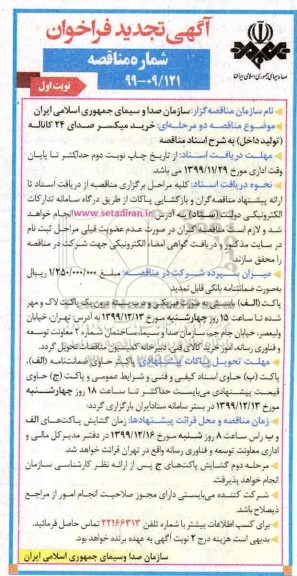 آگهی تجدید فراخوان
شماره مناقصه
۹۹-۰۹/۱۲۱
نوبت اول
صدا و سیمای جمهوری اسلامی ایران
نام سازمان مناقصه گزار: سازمان صدا و سیمای جمهوری اسلامی ایران
موضوع مناقصه دو مرحله‌ای: خرید میکسر صدای ۲۴ کاناله
(تولید داخل) به شرح اسناد مناقصه
مهلت دریافت اسناد: از تاریخ چاپ نوبت دوم حداکثر تا پایان
وقت اداری مورخ ۱۳۹۹/۱۱/۲۹ می باشد.
نحوه دریافت اسناد: کلیه مراحل برگزاری مناقصه از دریافت اسناد تا
ارائه پیشنهاد مناقصه گران و بازگشایی پاکات از طریق درگاه سامانه تدارکات
الکترونیکی دولت (ستاد) به آدرس www.setadiran.ir انجام خواهد
شد و لازم است مناقصه گران در صورت عدم عضویت قبلی مراحل ثبت نام
در سایت مذکور و دریافت گواهی امضاء الکترونیکی جهت شرکت در مناقصه
را محقق سازند.
میزان سپرده شرکت در مناقصه: مبلغ ۱/۲۵۰/۰۰۰/۰۰۰ ریال
به‌صورت ضمانتنامه بانکی قابل تمدید
پاکت (الف) بایستی به صورت فیزیکی و دربسته درون یک پاکت لاک و مهر
شده تا ساعت ۱۵ روز چهارشنبه مورخ ۱۳۹۹/۱۲/۱۳ به آدرس تهران، خیابان
ولیعصر، خیابان جام جم، سازمان صدا و سیما، ساختمان شماره ۲ معاونت توسعه
و فناوری رسانه، امور خرید کالای فنی، دبیرخانه کمیسیون مناقصات تحویل گردد.
مهلت تحویل پاکات پیشنهادی: پاکت حاوی ضمانتنامه (الف)،
پاکت (ب) حاوی اسناد کیفی و فنی و شرایط عمومی و پاکت (ج) حاوی
قیمت پیشنهادی می‌بایست حداکثر تا ساعت ۱۸ روز چهارشنبه
مورخ ۱۳۹۹/۱۲/۱۳ در بستر سامانه ستاد ایران بارگزاری گردد.
زمان مناقصه و محل قرائت پیشنهادها: زمان گشایش پاکت‌های الف
و ب راس ساعت ۸ روز شنبه مورخ ۱۳۹۹/۱۲/۱۶ در دفتر مدیرکل مالی و
اداری معاونت توسعه و فناوری رسانه واقع در تهران قرائت خواهد شد.
مرحله دوم گشایش پاکت‌های ج پس از ارائه نظر کارشناسی سازمان
انجام خواهد پذیرفت.
شرکت کننده می‌بایستی دارای مجوز صلاحیت انجام امور از مراجع
ذیصلاح باشد.
برای کسب اطلاعات بیشتر با شماره تلفن ۲۲۱۶۶۳۱۳ تماس حاصل فرمائید.
بدیهی است هزینه درج ۲ نوبت آگهی به عهده برنده خواهد بود.
سازمان صدا و سیمای جمهوری اسلامی ایران